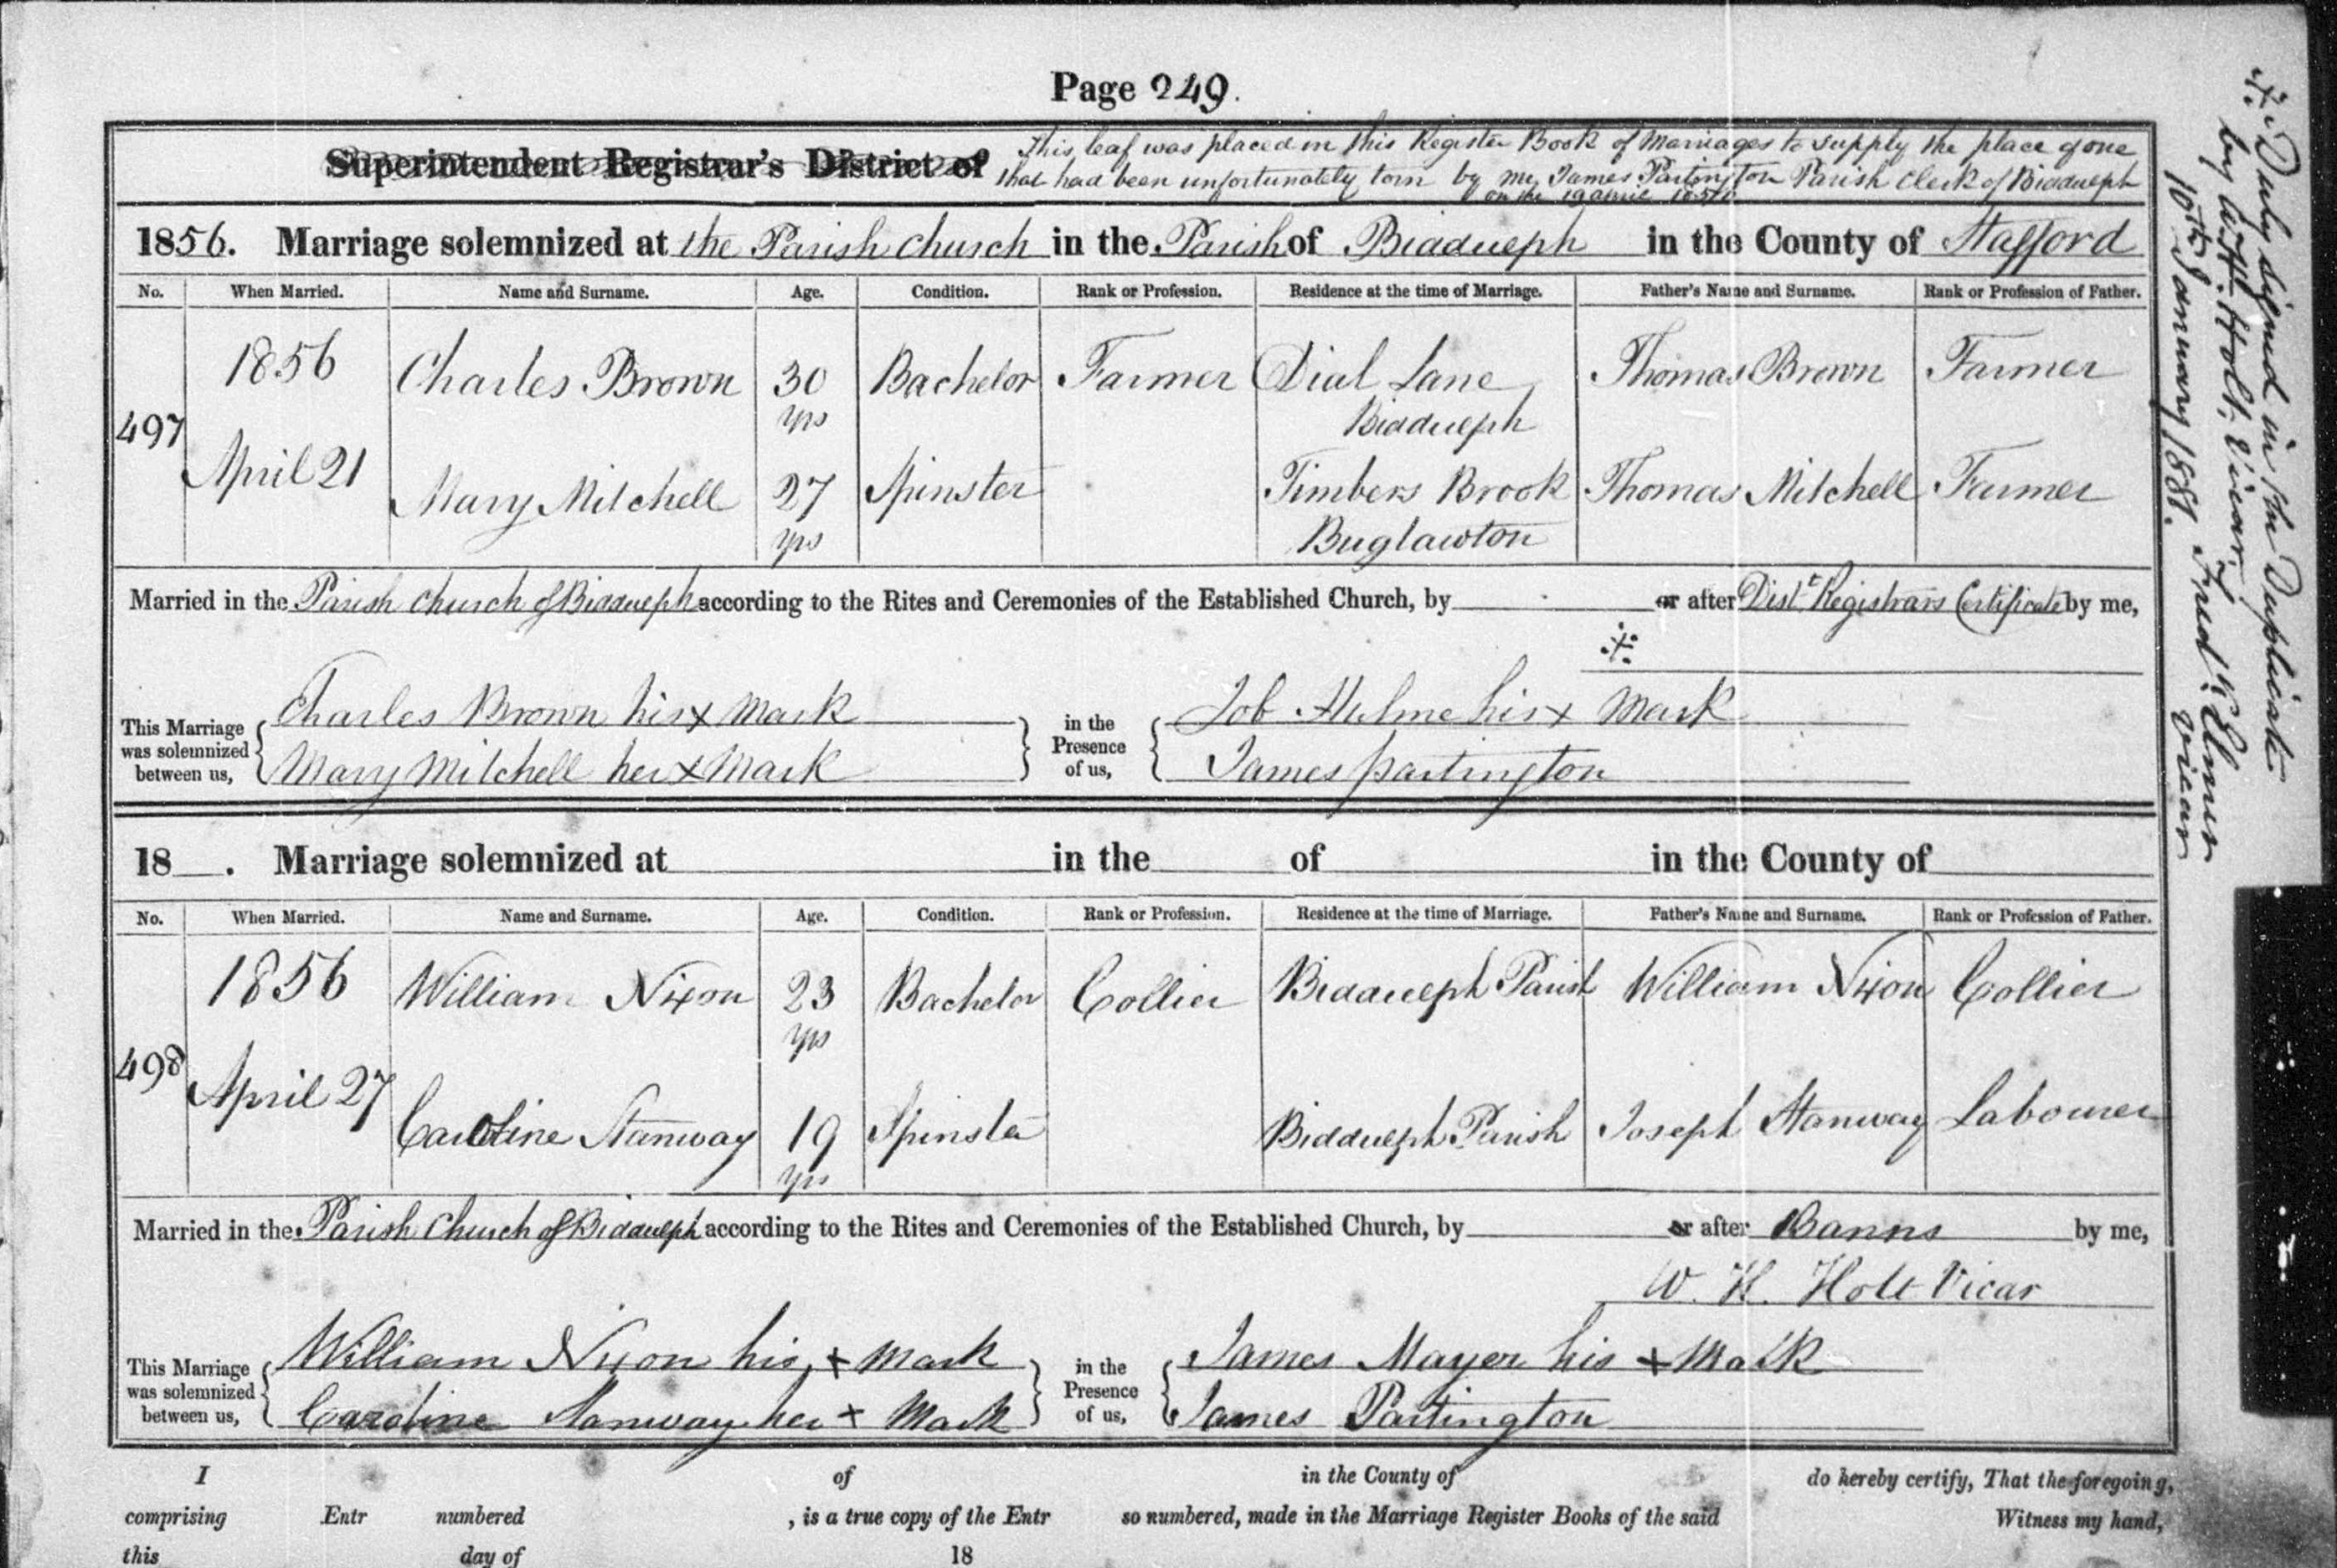 Page 249.
Superintendent Registrar's District of
This leaf was placed in this Register Book of Marriages to supply the place of one
that had been unfortunately torn by me, James Partington Parish Clerk of Biddulph
on the 19 April 1856
1856. Marriage solemnized at the Parish Church in the Parish of Biddulph in the County of Stafford
No. When Married. Name and Surname. Age. Condition. Rank or Profession. Residence at the time of Marriage. Father's Name and Surname. Rank or Profession of Father.
497 1856 April 21
Charles Brown 30 yrs Bachelor Farmer Dial Lane Biddulph Thomas Brown Farmer
Mary Mitchell 27 yrs Spinster Timbers Brook Buglawton Thomas Mitchell Farmer
Married in the Parish Church of Biddulph according to the Rites and Ceremonies of the Established Church, by or after Dist.t Registrars Certificate by me,
This Marriage was solemnized between us, Charles Brown his x Mark
Mary Mitchell her x Mark
in the Presence of us, Job Hulme his x Mark
James Partington
18 . Marriage solemnized at in the of in the County of
No. When Married. Name and Surname. Age. Condition. Rank or Profession. Residence at the time of Marriage. Father's Name and Surname. Rank or Profession of Father.
498 1856 April 27
William Nixon 23 yrs Bachelor Collier Biddulph Parish William Nixon Collier
Caroline Stanway 19 yrs Spinster Biddulph Parish Joseph Stanway Labourer
Married in the Parish Church of Biddulph according to the Rites and Ceremonies of the Established Church, by or after Banns by me,
W. H. Holt Vicar
This Marriage was solemnized between us, William Nixon his x Mark
Caroline Stanway her x Mark
in the Presence of us, James Mayer his x Mark
James Partington
I of in the County of do hereby certify, That the foregoing,
comprising Entr numbered , is a true copy of the Entr so numbered, made in the Marriage Register Books of the said Witness my hand,
this day of 18
Duly signed in the Duplicate
by W. H. Holt, Vicar, Fred.
10th January 1881. Vicar